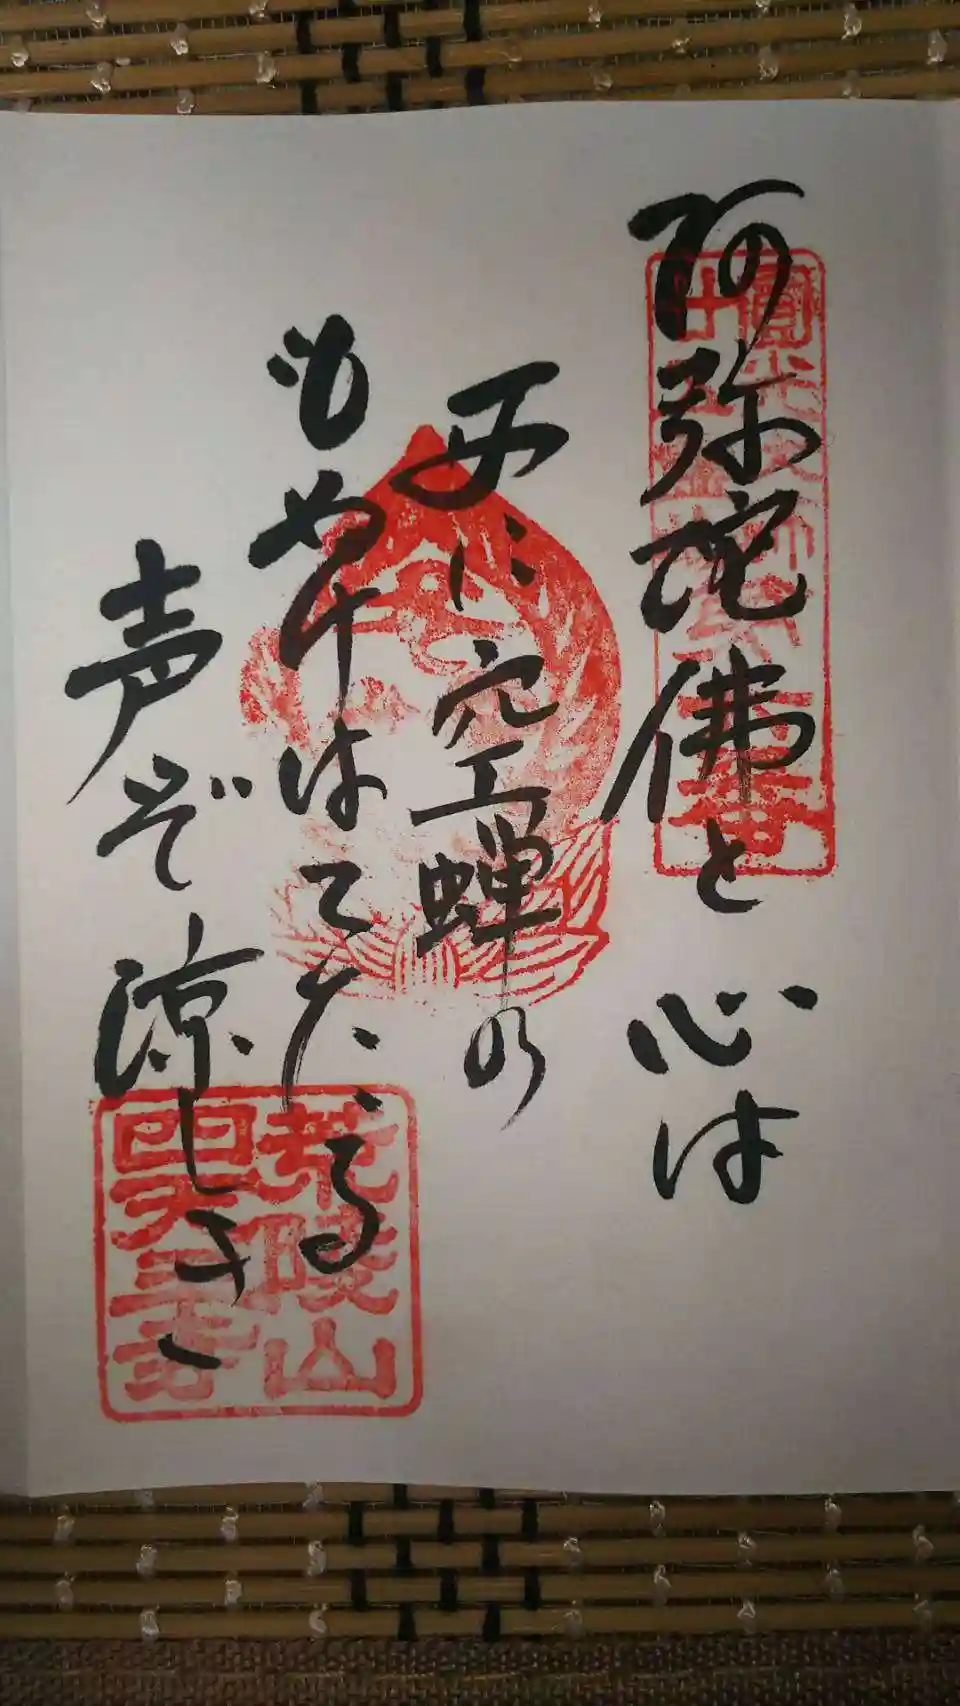 阿弥陀佛と心は
西に空蝉の
もぬけはてたる
声ぞ涼しき
荒陵山
四天王寺